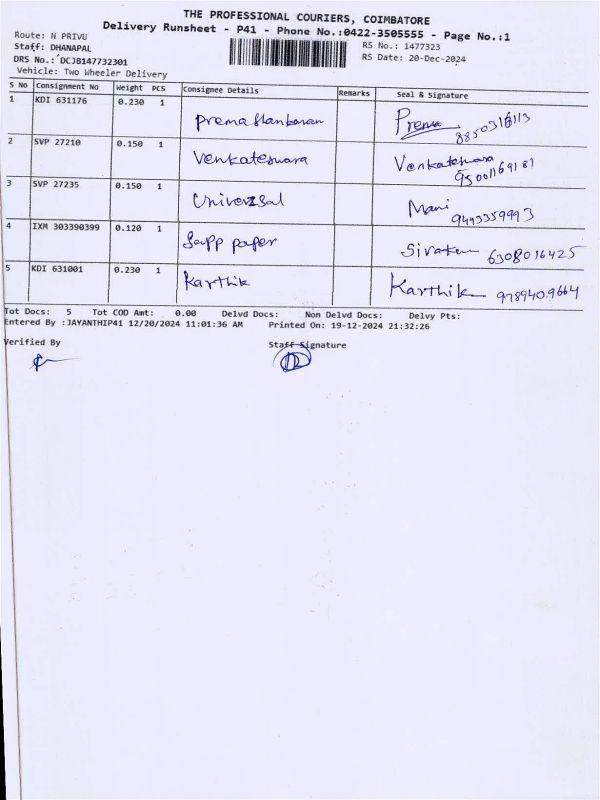 THE PROFESSIONAL COURIERS, COIMBATORE
Delivery Runsheet - P41 - Phone No.:0422-3505555 - Page No.:1
Route: N PRIVU
Staff: DHANAPAL
DRS No.: DCJB147732301
Vehicle: Two Wheeler Delivery
RS No.: 1477323
RS Date: 20-Dec-2024
S No Consignment No Weight PCS Consignee Details Remarks Seal & Signature
1 KDI 631176 0.230 1 Prema Prema
2 SVP 27210 0.150 1 Venkateswara Venkateswara
3 SVP 27235 0.150 1 Universal Mani 9443359993
4 IXM 303390399 0.120 1 paper 6308016425
5 KDI 631001 0.230 1 Karthik Karthik 9789409664
Tot Docs: 5 Tot COD Amt: 0.00 Delvd Docs: Non Delvd Docs: Delvy Pts:
Entered By :JAYANTHIP41 12/20/2024 11:01:36 AM Printed On: 19-12-2024 21:32:26
Verified By Staff Signature